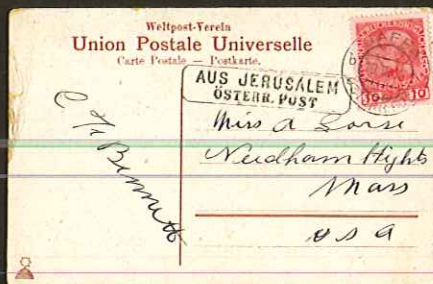 Weltpost-Verein
Union Postale Universelle
Carte Postale — Postkarte.
AUS JERUSALEM
ÖSTERR. POST
10 10
Miss A
Needham Hights
Mass
USA
Bennett